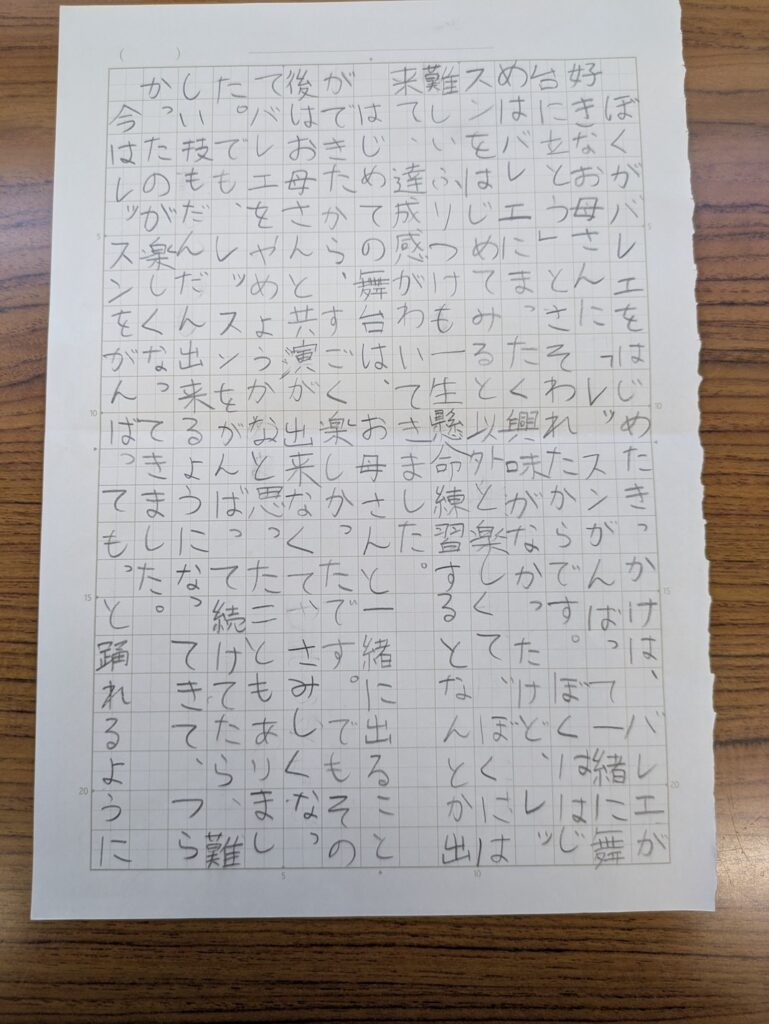 ぼくがバレエをはじめたきっかけは、バレエが
好きなお母さんに「レッスンがんばって一緒に舞
台に立とう」とさそわれたからです。ぼくははじ
めはバレエにまったく興味がなかったけど、レッ
スンをはじめてみると以外と楽しくて、ぼくには
難しいふりつけも一生懸命練習するとなんとか出
来て、達成感がわいてきました。
はじめての舞台は、お母さんと一緒に出ること
ができたから、すごく楽しかったです。でもその
後はお母さんと共演が出来なくてさみしくなっ
てバレエをやめようかなと思ったこともありまし
た。でも、レッスンをがんばって続けてたら、難
しい技もだんだん出来るようになってきて、つら
かったのが楽しくなってきました。
今はレッスンをがんばってもっと踊れるように